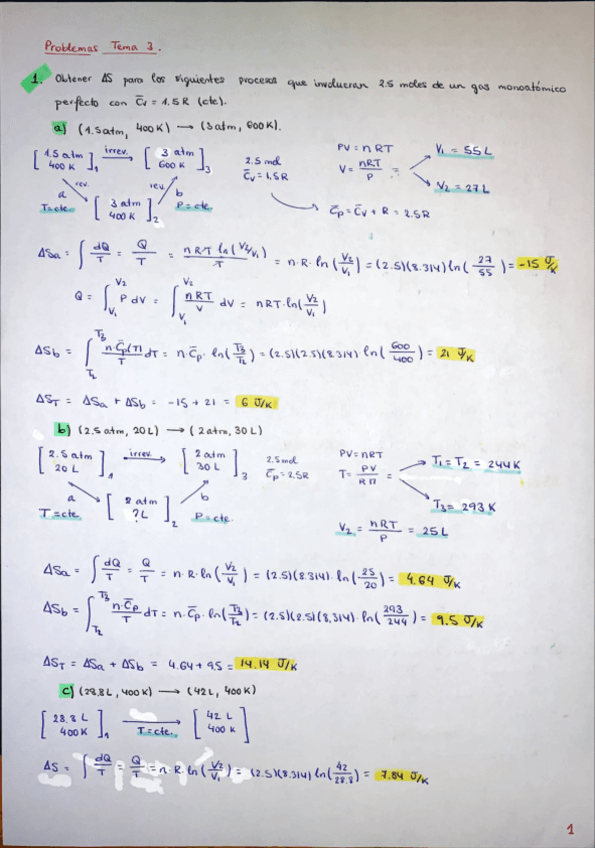 Problemas Tema 3.
1. Obtener ΔS para los siguientes procesos que involucran 2.5 moles de un gas monoatómico
perfecto con C̄v = 1.5R (cte).
a) (1.5atm, 400K) → (3atm, 600K).
[1.5 atm 400 K]1 irrev. → [3 atm 600 K]3
2.5 mol C̄v = 1,5R
PV = nRT
V = nRT/P =
V1 = 55L
V2 = 27L
a rev. T=cte.
[3 atm 400 K]2
rev. b P=cte.
C̄p = C̄v + R = 2.5R
ΔSa = ∫ dQ/T = Q/T = nRT ln(V2/V1)/T = n·R·ln(V2/V1) = (2.5)(8.314)ln(27/55) = -15 J/K
Q = ∫V1V2 P dV = ∫V1V2 nRT/V dV = nRT·ln(V2/V1)
ΔSb = ∫T2T3 n C̄p(T)/T dT = n·C̄p·ln(T3/T2) = (2.5)(2.5)(8.314) ln(600/400) = 21 J/K
ΔST = ΔSa + ΔSb = -15 + 21 = 6 J/K
b) (2.5atm, 20L) → (2atm, 30L)
[2.5 atm 20 L]1 irrev. → [2 atm 30 L]3
2.5mol C̄p = 2.5R
PV=nRT
T = PV/Rn =
T1 = T2 = 244K
T3 = 293 K
a T=cte.
[2 atm ? L]2
b P=cte.
V2 = nRT/P = 25L
ΔSa = ∫ dQ/T = Q/T = n·R·ln(V2/V1) = (2.5)(8.314)·ln(25/20) = 4.64 J/K
ΔSb = ∫T2T3 n·C̄p/T dT = n·C̄p·ln(T3/T2) = (2.5)(2.5)(8,314)·ln(293/244) = 9.5 J/K
ΔST = ΔSa + ΔSb = 4.64 + 9.5 = 14.14 J/K
c) (28.8L, 400K) → (42L, 400K)
[28.8 L 400K]1 → T=cte. [42 L 400 K]
ΔS = ∫ dQ/T = Q/T = n·R·ln(V2/V1) = (2.5)(8.314)ln(42/28.8) = 7.84 J/K
1